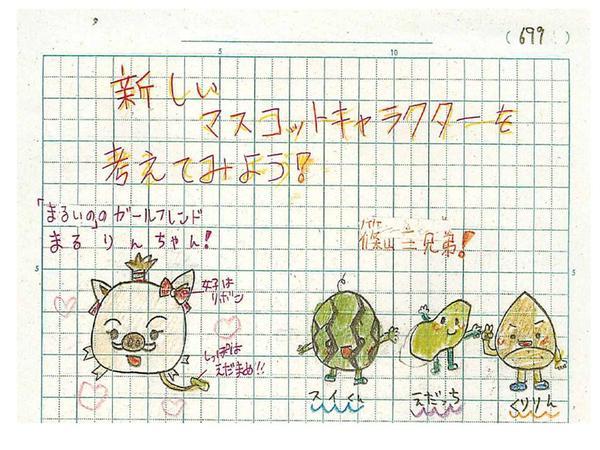 (699)
5 10
新しい
マスコットキャラクターを
考えてみよう!
「まるいの」のガールフレンド
まるりんちゃん!
篠山三兄弟!
5 5
女子は
リボン
しっぽは
えだまめ!!
スイくん えだっち くりりん